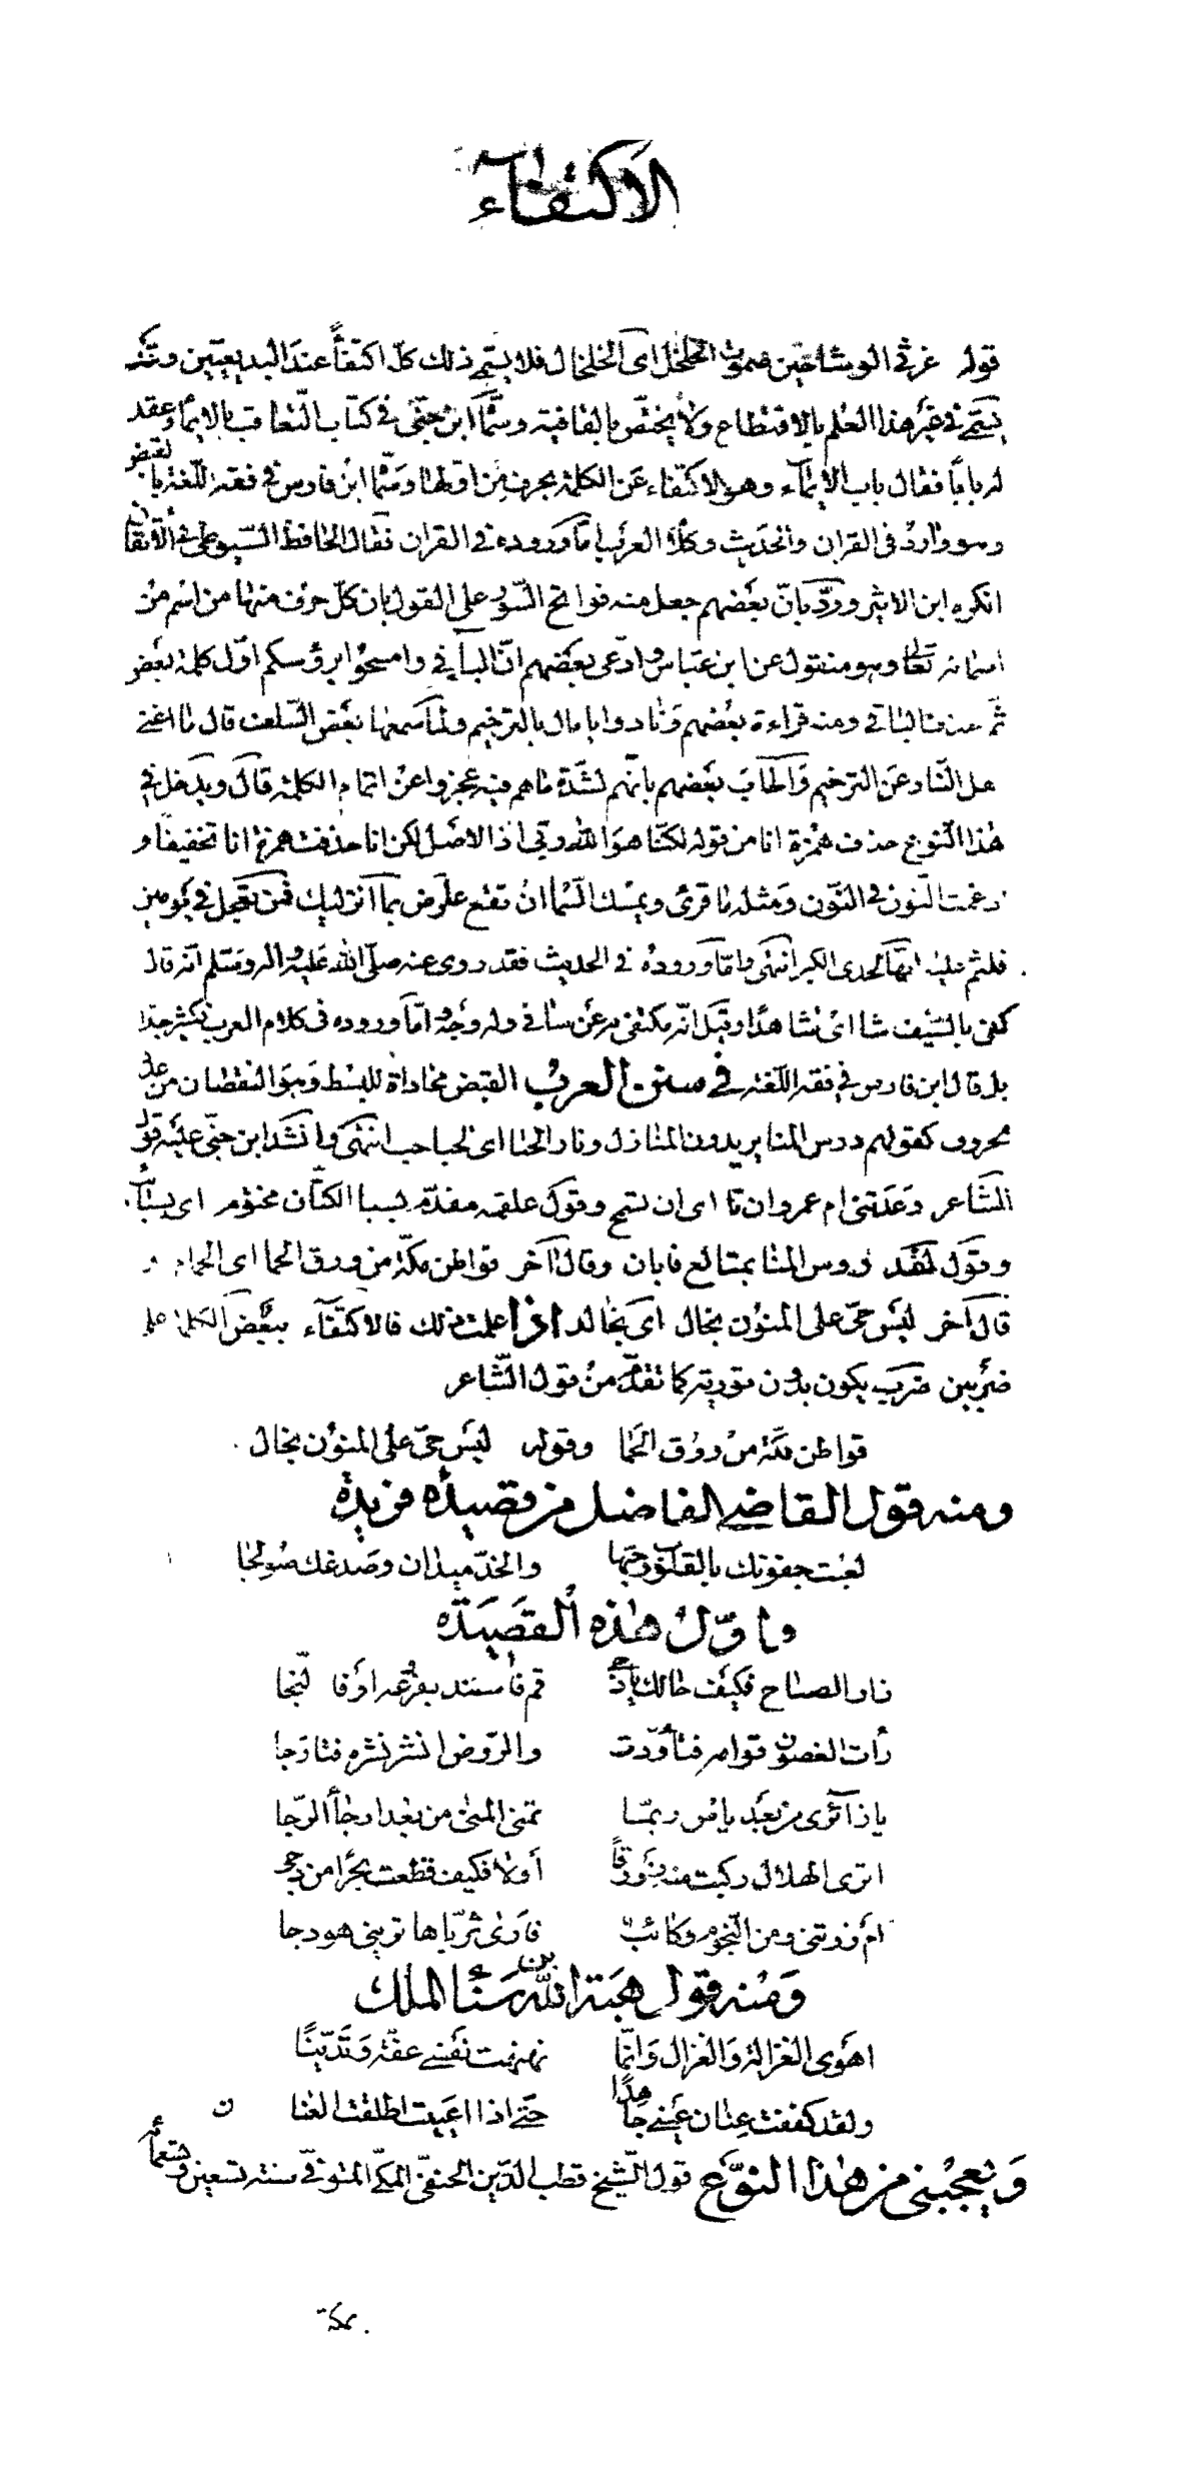 الاكتفاء
قوله غرثى الوشاحين صموت الخلخل اى الخلخال فلا يسمى ذلك كلّ اكتفاءً عند البديعيين وقد
يسمّى فى غير هذا العلم بالاقتطاع ولا يختصّ بالقافية وسمّاه ابن جنّى فى كتاب التّعاقب بالايماء وعقد
له بابًا فقال باب الايماء وهو الاكتفاء عن الكلمة بحرف من اوّلها وسمّاه ابن فارس فى فقه اللّغة بالقبض
وهو وارد فى القران والحديث وكلام العرب امّا وروده فى القران فقال الحافظ السّيوطى فى الاتقان
انكره ابن الاثير وردّ بانّ بعضهم جعل منه فواتح السّور على القول بان كلّ حرف منها من اسم من
اسمائه تعالى وهو منقول عن ابن عبّاس وادّعى بعضهم انّ الباء فى وامسحوا برؤسكم اوّل كلمة بعض
ثمّ حذف الباقى ومنه قراءة بعضهم ونادوا يا مال بالترخيم ولمّا سمعها بعض السّلف قال ما اغنى
اهل النّار عن الترخيم واجاب بعضهم بانّهم لشدّة ما هم فيه عجزوا عن اتمام الكلمة قال ويدخل فى
هذا النّوع حذف همزة انا من قوله لكنّا هو الله ربّى اذ الاصل لكن انا حذفت همزة انا تخفيفًا و
ادغمت النّون فى النّون ومثله ما قرئ ويمسك السّما ان تقع علّرض بما انزليك فمن تعجّل فى يومين
فلثم عليه انّها لحدى الكبر انتهى وامّا وروده فى الحديث فقد روى عنه صلّى الله عليه واله وسلّم انّه قال
كفى بالسّيف شا اى شاهدًا وقيل انّه مكتفى به عن شافى وله وجه وامّا وروده فى كلام العرب فكثير جدّا
بل قال ابن فارس فى فقه اللّغة فى سنن العرب القبض محاذاة للبسط وهو النقصان من عدد
الحروف كقولهم درس المنا يريدون المنازل ونار الحبا اى الحباحب انتهى وانشد ابن جنّى عليه قول
الشّاعر وعدتنى ام عمرو ان تا اى ان تمسح وقول علقمه مفدّم بسبا الكتّان مختوم اى بسبائب
وقول لبيد درس المنا بمتالع فابان وقال اخر قواطن مكّة من ورق الحما اى الحمام و
قال اخر ليس حىّ على المنون بخال اى بخالد اذا علمت ذلك فالاكتفاء ببعض الكلمة على
ضربين ضرب يكون بدون تورية كما تقدّم من قول الشّاعر
قواطن مكّة من ورق الحما وقوله ليس حىّ على المنون بخال
ومنه قول القاضى الفاضل من قصيدة فريدة
لعبت جفونك بالقلوب وحبّها والخدّ ميدان وصدغك صولجا
واوّل هذه القصيدة
زار الصباح فكيف حالك يا دجى قم فاستند بفرعه او فالنجا
رأت الغصون قوامه فتأوّدت والرّوض انشر نشره فتأرّجا
يا زائرى من بعد يأس ربّما تمنى المنى من بعد ارجاء الرّجا
اترى الهلال ركبت منه زورقًا أولا فكيف قطعت بحرًا من دجى
أم زرتنى ومن النّجوم ركائب فارى ثريّاها ترينى هودجا
ومنه قول هبة الله بن سنا الملك
اهوى الغزالة والغزال وانّما نهنهت نفسى عفّة وتديّنًا
ولقد كففت عنان عينى جاهدًا حتّى اذا اعييت اطلقت العنا ن
ويعجبنى من هذا النوّع قول الشّيخ قطب الدّين الحنفىّ المكّى المتوفى سنة تسعين وتسعمأة
بمكة